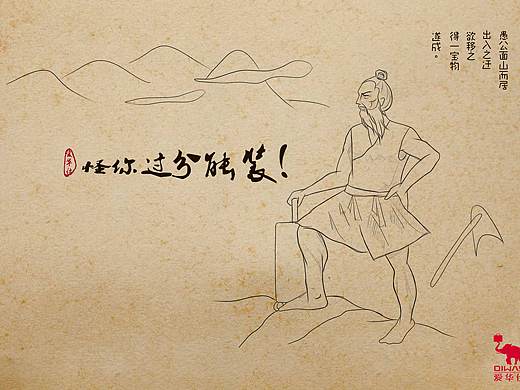 愚公面山而居
出入之迂
欲移之
得一宝物
遂成。
怪你过分能装！
OIWA
爱华